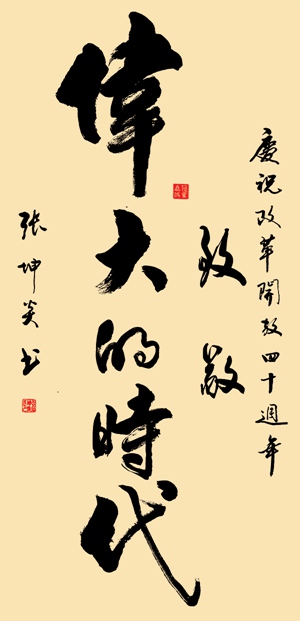 慶祝改革開放四十週年
致敬
偉大的時代
張坤炎书